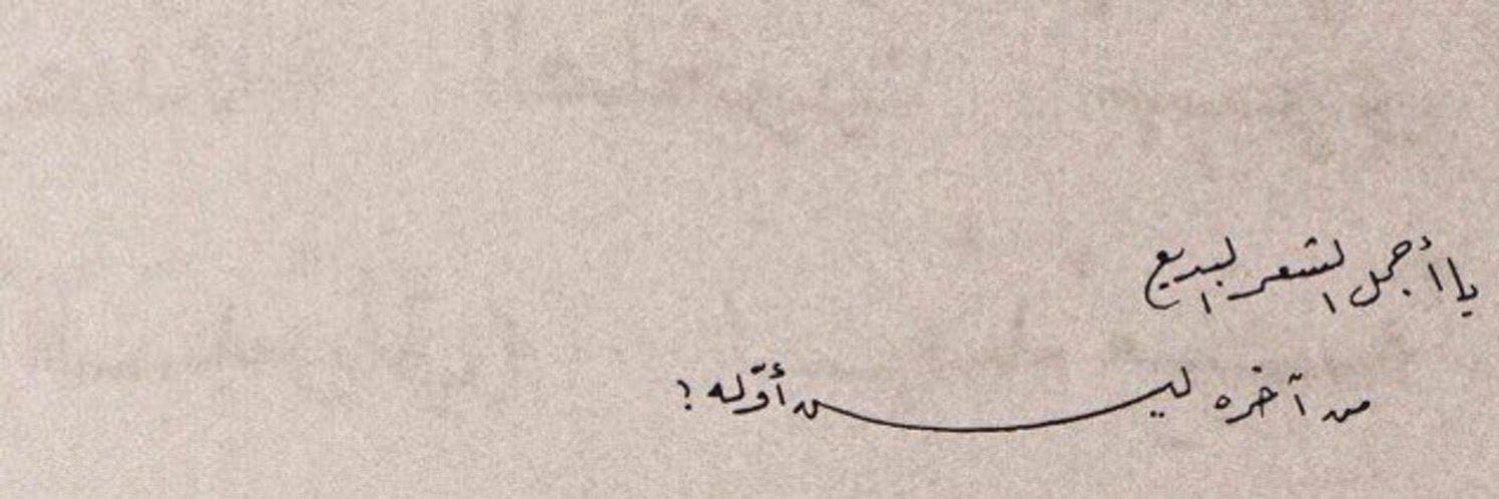 يا أجمل الشعر البديع
من آخره ليـــــس أوّله !